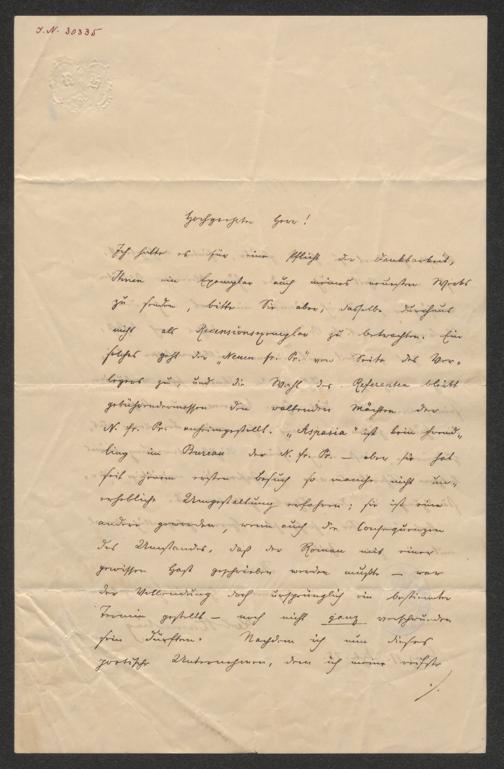 J. N. 30335
Hochgeehrter Herr!
Ich halte es für eine Pflicht der Dankbarkeit,
Ihnen ein Exemplar auch meines neuesten Werks
zu senden, bitte Sie aber, dasselbe durchaus
nicht als Recensionsexemplar zu betrachten. Ein
solches geht der „Neuen fr. Pr." von Seite des Ver-
legers zu, und die Wahl des Referenten bleibt
gebührendermassen den waltenden Mächten der
N. fr. Pr. anheimgestellt. „Aspasia" ist kein Fremd-
ling im Bureau der N. fr. Pr. — aber sie hat
seit jenem ersten Besuch so manche nicht un-
erhebliche Umgestaltung erfahren; sie ist eine
andere geworden, wenn auch die Consequenzen
des Umstandes, daß der Roman mit einer
gewissen Hast geschrieben werden mußte — war
der Vollendung doch ursprünglich ein bestimmter
Termin gestellt — noch nicht ganz verschwunden
sein dürften. Nachdem ich nun dieses
poetische Unternehmen, dem ich meine reifste
./.